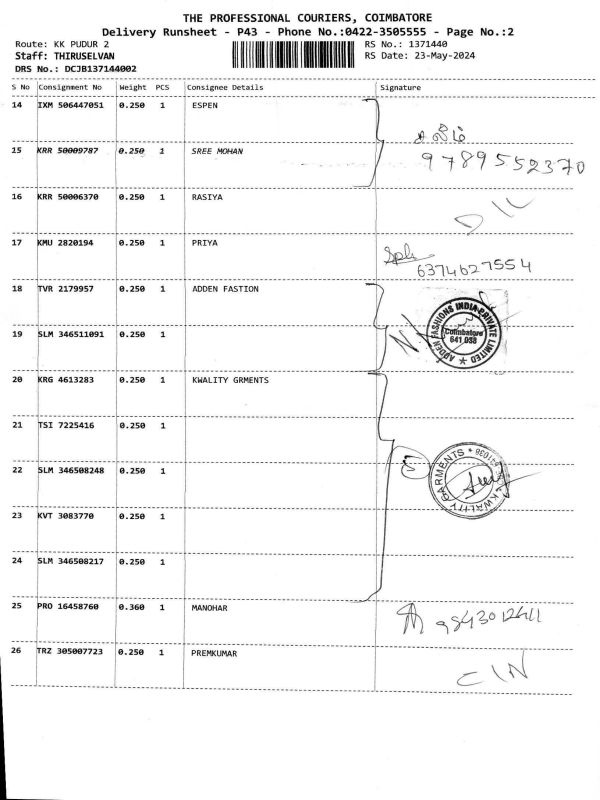 THE PROFESSIONAL COURIERS, COIMBATORE
Delivery Runsheet - P43 - Phone No.:0422-3505555 - Page No.:2
Route: KK PUDUR 2
RS No.: 1371440
Staff: THIRUSELVAN
RS Date: 23-May-2024
DRS No.: DCJB137144002
S No Consignment No Weight PCS Consignee Details Signature
14 IXM 506447051 0.250 1 ESPEN
15 KRR 50009787 0.250 1 SREE MOHAN
சலீம்
9789552370
16 KRR 50006370 0.250 1 RASIYA
17 KMU 2820194 0.250 1 PRIYA
6374627554
18 TVR 2179957 0.250 1 ADDEN FASTION
ADDEN FASHIONS INDIA PRIVATE LIMITED
Coimbatore
641 038
19 SLM 346511091 0.250 1
20 KRG 4613283 0.250 1 KWALITY GRMENTS
21 TSI 7225416 0.250 1
22 SLM 346508248 0.250 1
5
KWALITY GARMENTS
23 KVT 3083770 0.250 1
24 SLM 346508217 0.250 1
25 PRO 16458760 0.360 1 MANOHAR
26 TRZ 305007723 0.250 1 PREMKUMAR